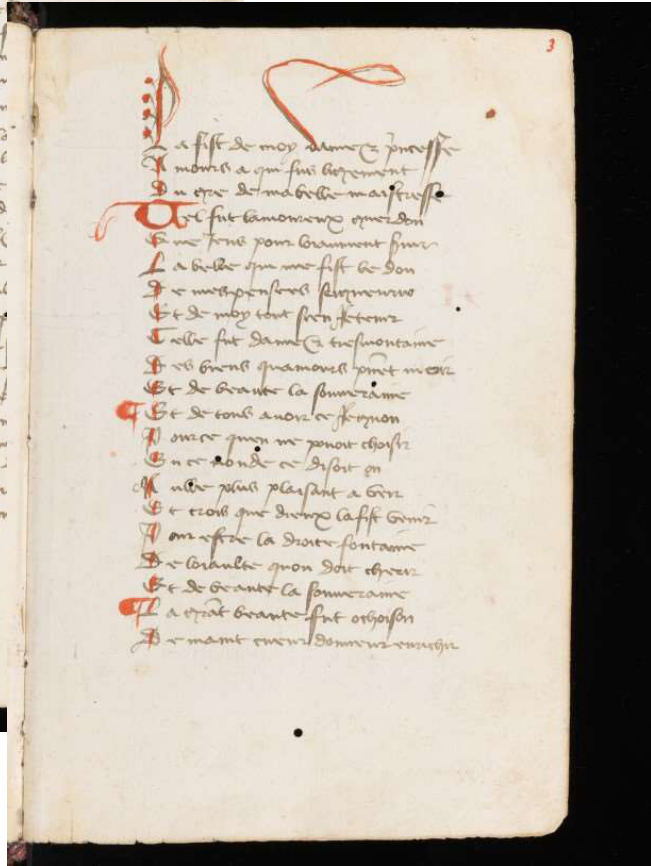 3
La fist de moy dame et princesse
Amours a qui fuis ligement
Du gre de ma belle maistresse
Tel fut lamoureux guerdon
Que jeus pour loiaument servir
La belle qui me fist le don
De mes pensees
Et de moy tout sien retenir
Celle fut dame et tresmontaine
Des biens quamours peut
Et de beaute la souveraine
Et de tous avoir ce renon
Pource quen ne povoit choisir
En ce monde ce disoit on
Nulle plus plaisant a veir
Et crois que dieux la fist venir
Pour estre la droite fontaine
De loiaulte quon doit cherir
Et de beaute la souveraine
La grant beaute fut ochoison
De maint cueur donneur enrichir